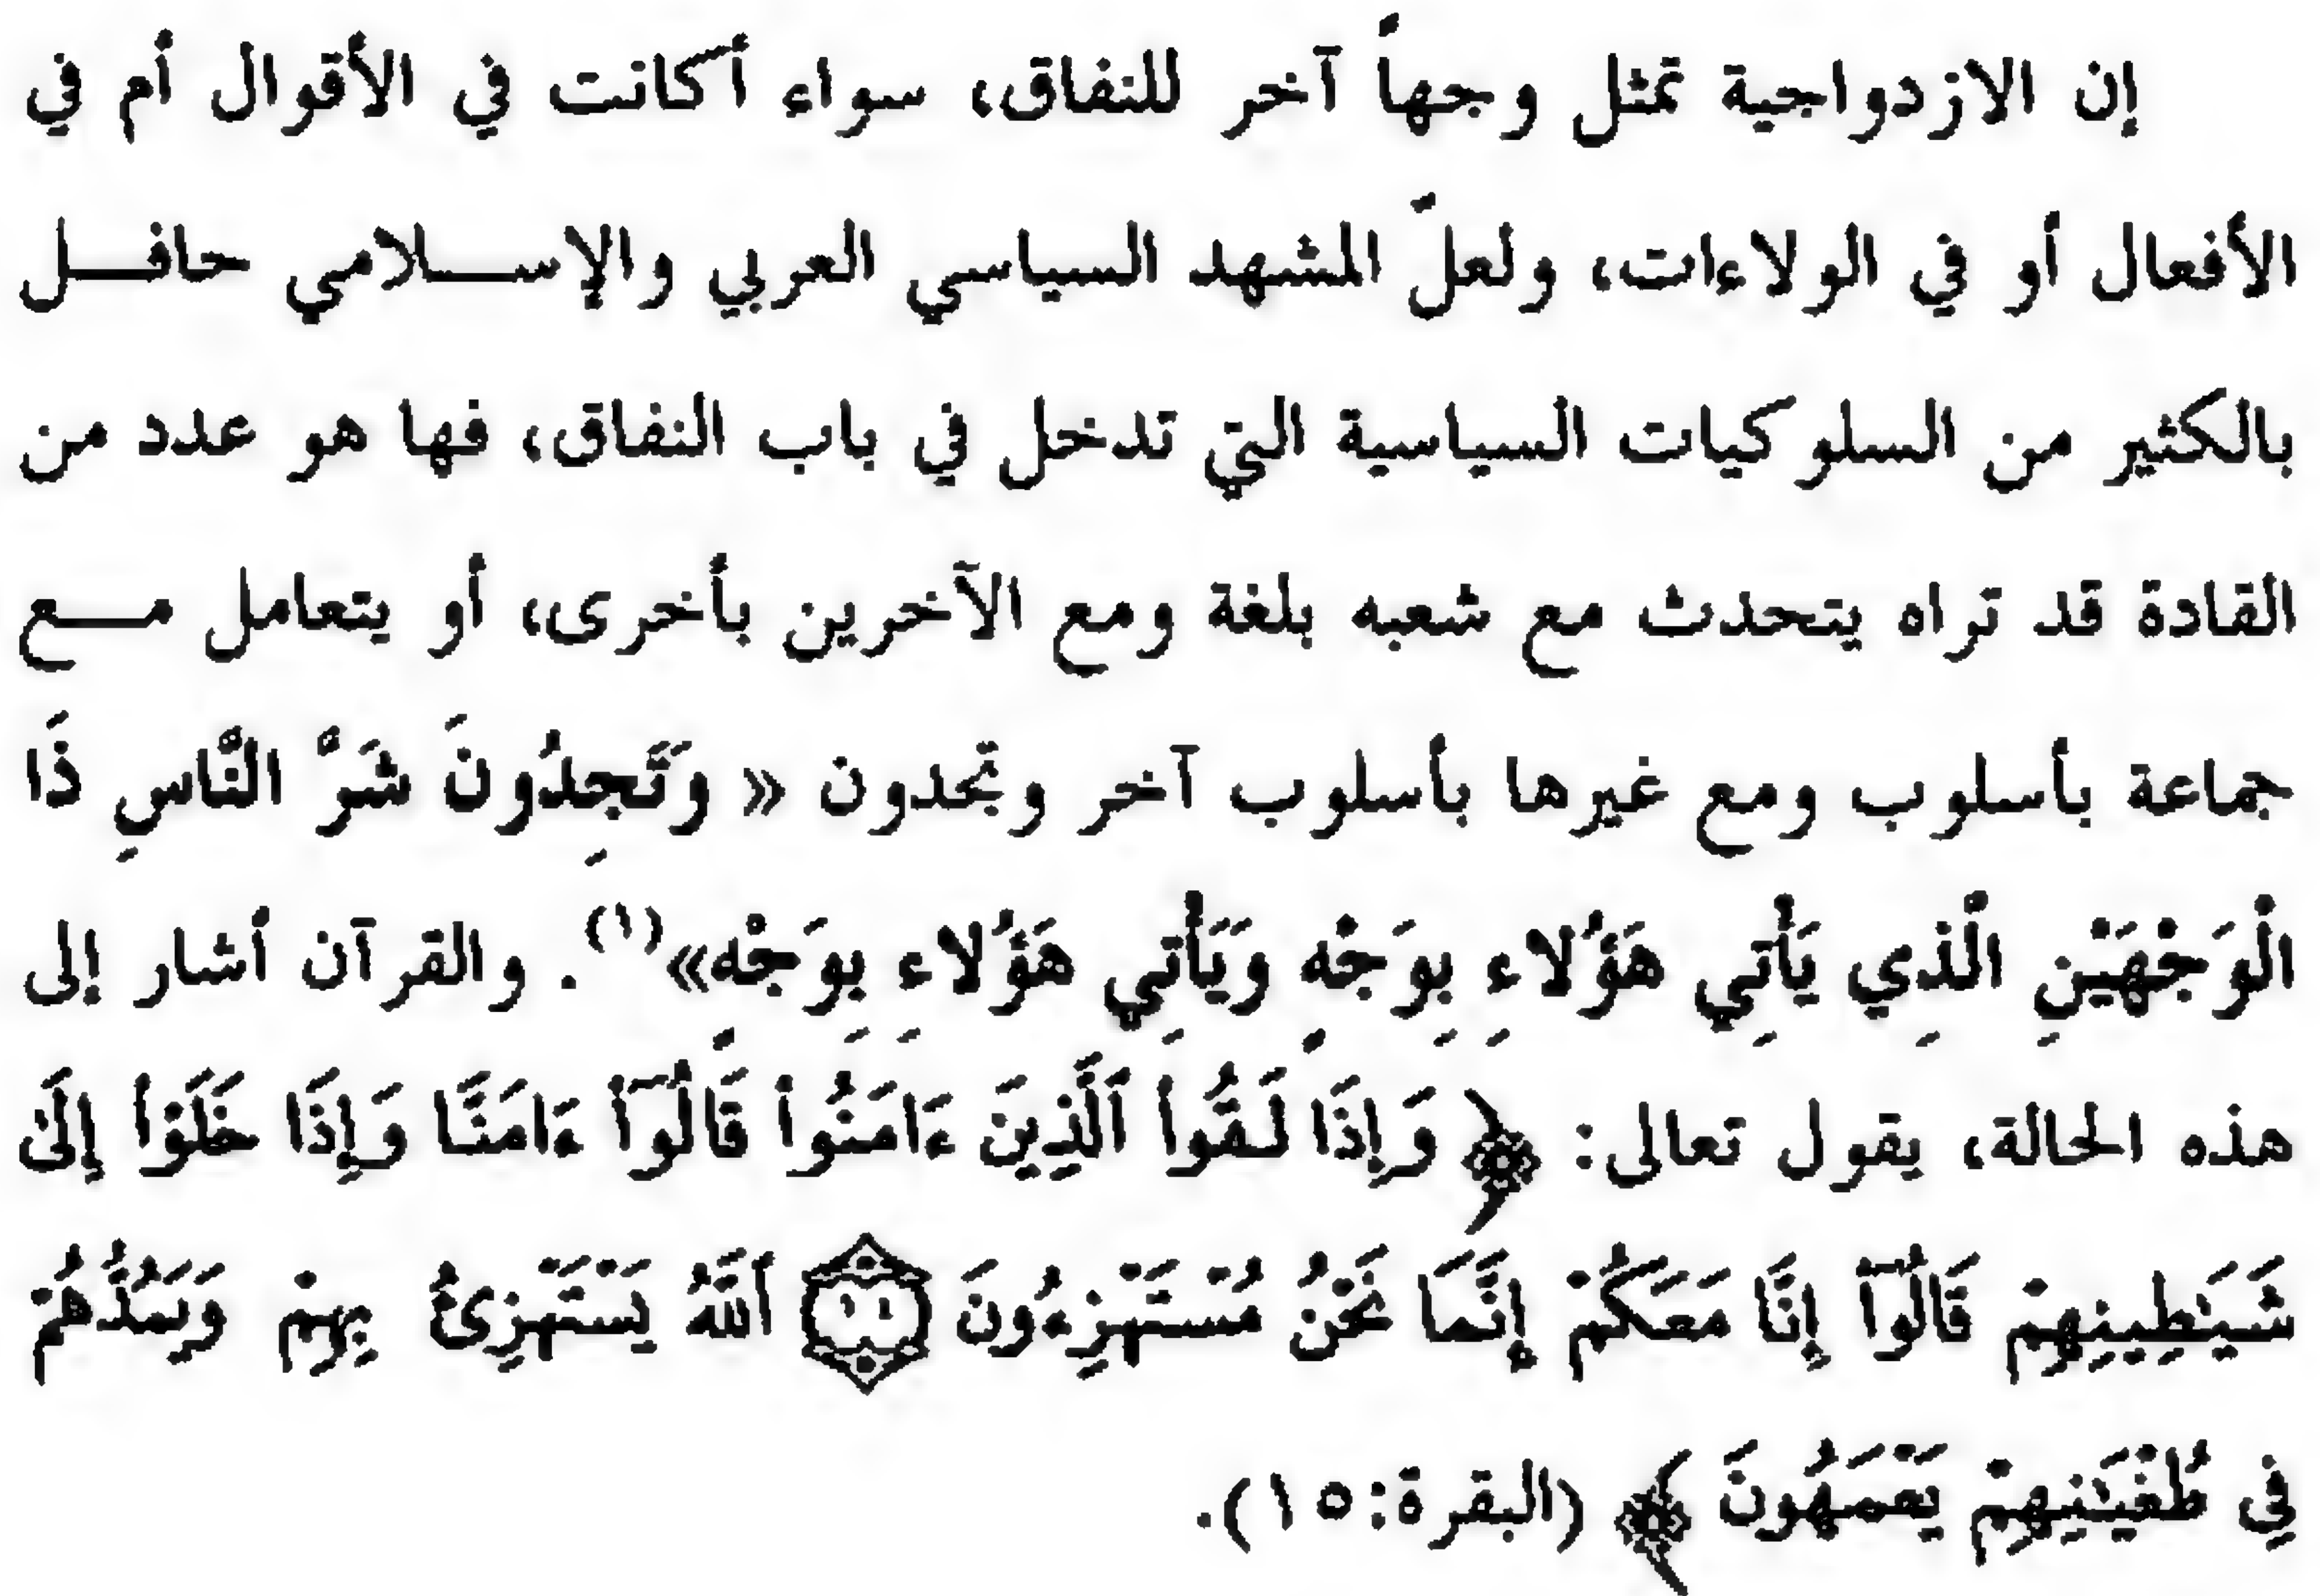 إن الازدواجية تمثل وجهاً آخر للنفاق، سواء أكانت في الأقوال أم في
الأفعال أو في الولاءات، ولعلّ المشهد السياسي العربي والإســلامي حافــل
بالكثير من السلوكيات السياسية التي تدخل في باب النفاق، فها هو عدد من
القادة قد تراه يتحدث مع شعبه بلغة ومع الآخرين بأخرى، أو يتعامل مــع
جماعة بأسلوب ومع غيرها بأسلوب آخر وتجدون « وَتَجِدُونَ شَرَّ النَّاسِ ذَا
الْوَجْهَيْنِ الَّذِي يَأْتِي هَؤُلاءِ بِوَجْهٍ وَيَأْتِي هَؤُلاءِ بِوَجْهٍ»(١). والقرآن أشار إلى
هذه الحالة، يقول تعالى: ﴿ وَإِذَا لَقُوا۟ ٱلَّذِينَ ءَامَنُوا۟ قَالُوٓا۟ ءَامَنَّا وَإِذَا خَلَوْا۟ إِلَىٰ
شَيَـٰطِينِهِمْ قَالُوٓا۟ إِنَّا مَعَكُمْ إِنَّمَا نَحْنُ مُسْتَهْزِءُونَ ١٤ ٱللَّهُ يَسْتَهْزِئُ بِهِمْ وَيَمُدُّهُمْ
فِي طُغْيَـٰنِهِمْ يَعْمَهُونَ ﴾ (البقرة:١٥).